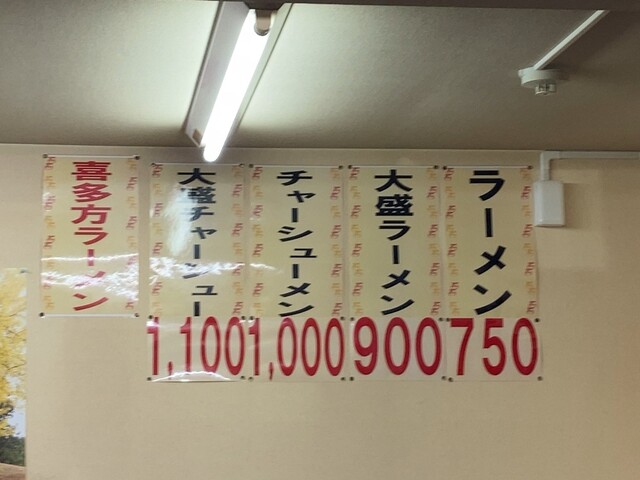 ラーメン
750
大盛ラーメン
900
チャーシューメン
1,000
大盛チャーシュー
1,100
喜多方ラーメン